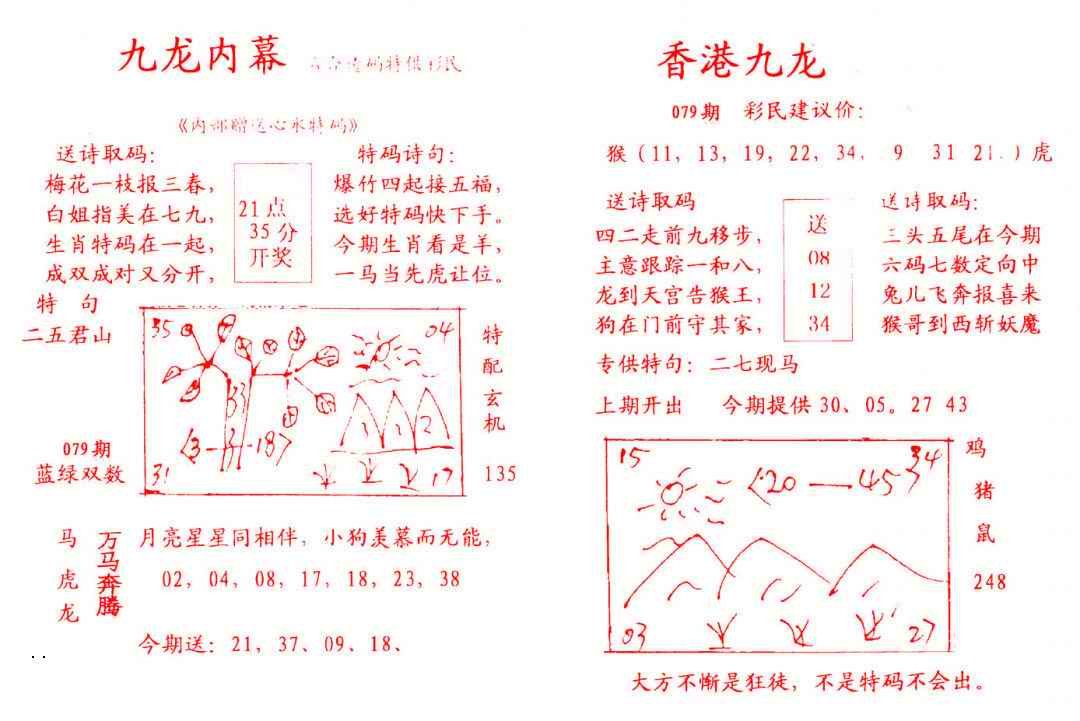 九龙内幕
《内部赠送心水特码》
送诗取码：
梅花一枝报三春，
白姐指美在七九，
生肖特码在一起，
成双成对又分开，
21点
35分
开奖
特码诗句：
爆竹四起接五福，
选好特码快下手。
今期生肖看是羊，
一马当先虎让位。
特 句
二五君山
079期
蓝绿双数
35
04
33
1
1
2
31
17
特
配
玄
机
135
马
虎
龙
万马奔腾
月亮星星同相伴，小狗羡慕而无能，
02，04，08，17，18，23，38
今期送：21，37、09、18、
香港九龙
079期 彩民建议价：
猴（11，13，19，22，34， 9 31 21.）虎
送诗取码
四二走前九移步，
主意跟踪一和八，
龙到天宫告猴王，
狗在门前守其家，
送
08
12
34
送诗取码：
三头五尾在今期
六码七数定向中
兔儿飞奔报喜来
猴哥到西斩妖魔
专供特句：二七现马
上期开出 今期提供30、05。27 43
15
34
<20 — 45>
03
27
鸡
猪
鼠
248
大方不惭是狂徒，不是特码不会出。